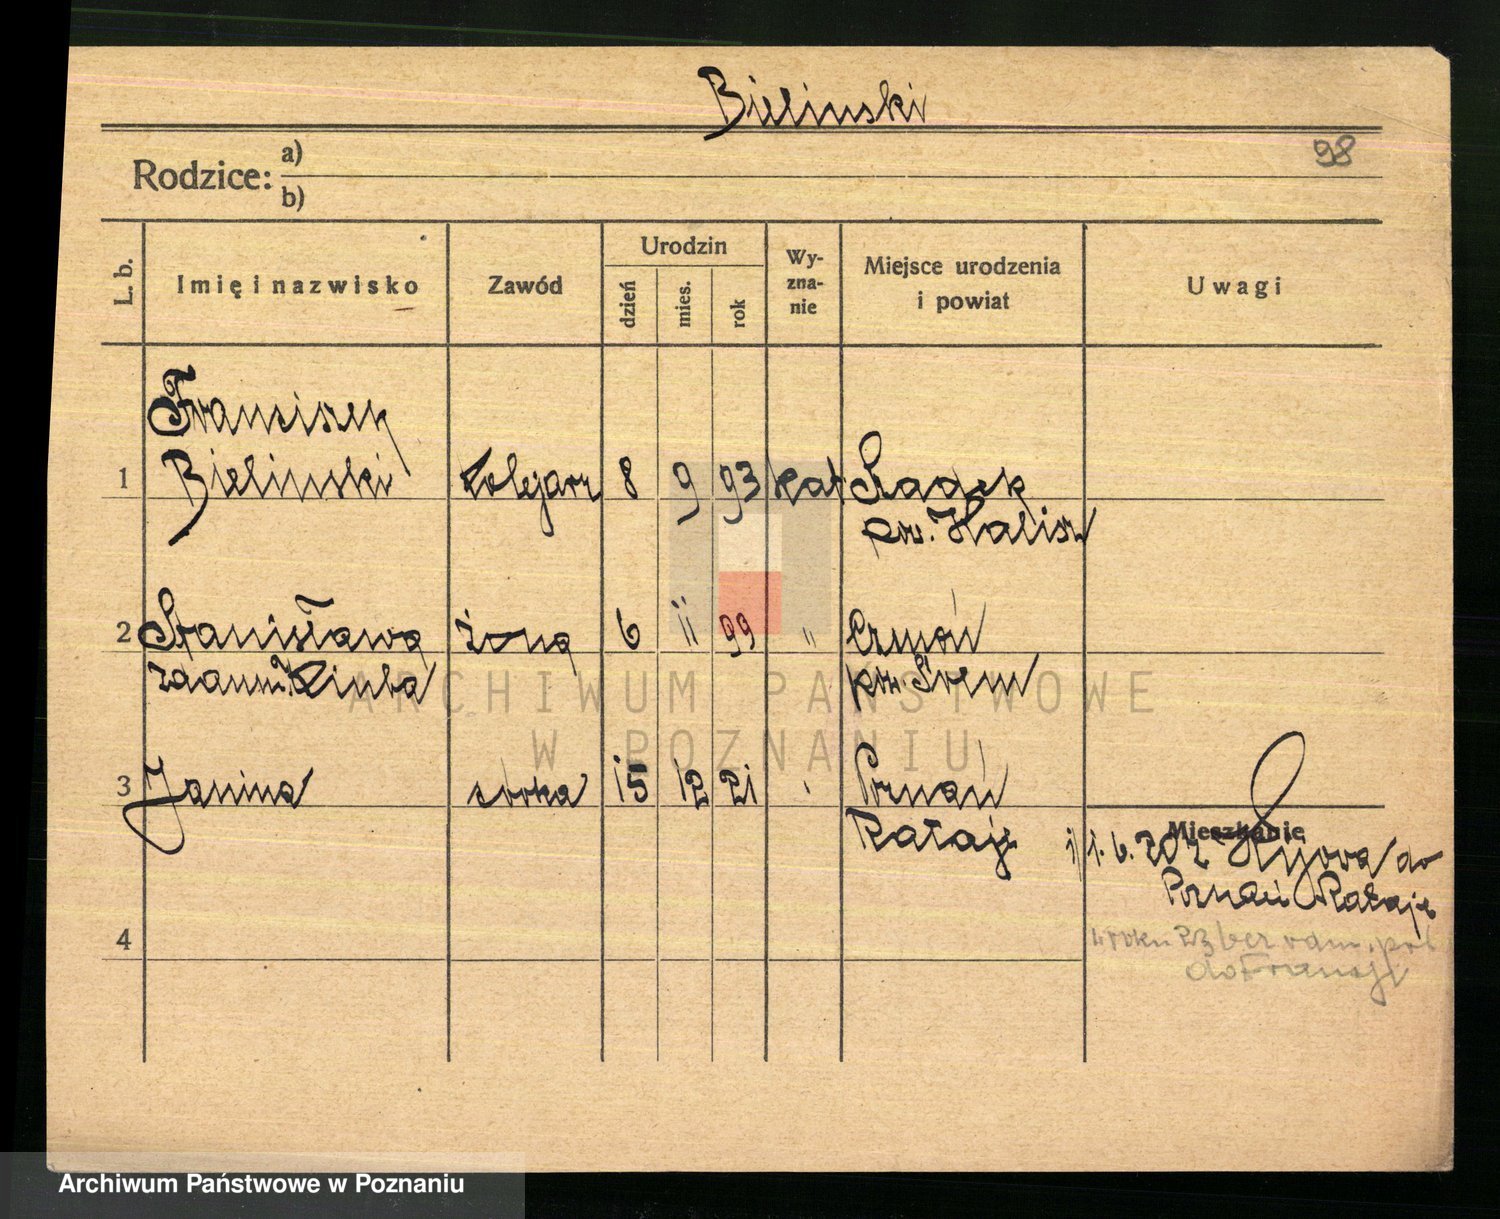 Bielinski
98
Rodzice: a)
b)
L. b.
Imię i nazwisko
Zawód
Urodzin
dzień
mies.
rok
Wy-
zna-
nie
Miejsce urodzenia
i powiat
Uwagi
Franciszek
1 Bielinski kolejarz 8 9 93 kat Sadek
pow. Kalisz
2 Stanisława żona 6 11 99 " Czmoń
pow. Śrem
3 Janina córka 15 12 21 " Poznań
Rataje
Mieszkanie
1. 6. 20 z do
Poznań Rataje
w roku 23 bez odm. pol
do Francji
4
ARCHIWUM PAŃSTWOWE
W POZNANIU
Archiwum Państwowe w Poznaniu